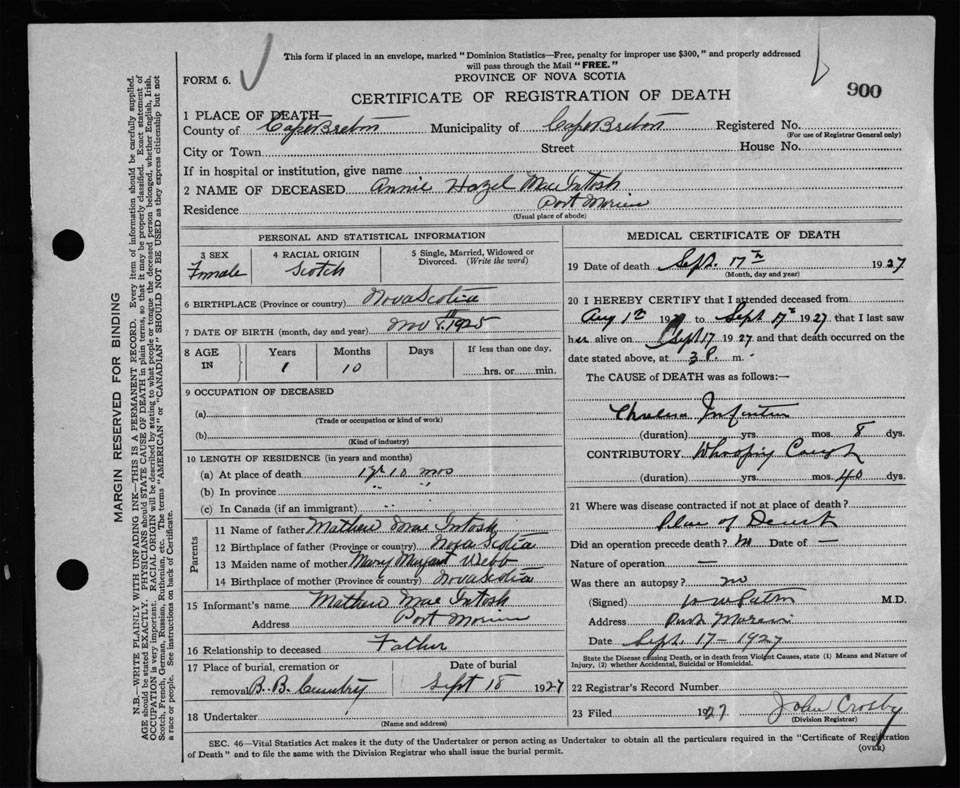 This form if placed in an envelope, marked "Dominion Statistics—Free, penalty for improper use $300," and properly addressed
will pass through the Mail "FREE."
FORM 6.
PROVINCE OF NOVA SCOTIA
900
CERTIFICATE OF REGISTRATION OF DEATH
1 PLACE OF DEATH—
County of Cape Breton Municipality of Cape Breton Registered No.
(For use of Registrar General only)
City or Town Street House No.
If in hospital or institution, give name
2 NAME OF DECEASED Annie Hazel MacIntosh
Residence Port Morien
(Usual place of abode)
PERSONAL AND STATISTICAL INFORMATION
3 SEX 4 RACIAL ORIGIN 5 Single, Married, Widowed or
Divorced. (Write the word)
Female Scotch
6 BIRTHPLACE (Province or country) Nova Scotia
7 DATE OF BIRTH (month, day and year) Nov 8th 1925
8 AGE IN Years Months Days If less than one day,
1 10 hrs. or min.
9 OCCUPATION OF DECEASED
(a)
(Trade or occupation or kind of work)
(b)
(Kind of industry)
10 LENGTH OF RESIDENCE (in years and months)
(a) At place of death 1 yr 10 mos
(b) In province " "
(c) In Canada (if an immigrant) " "
Parents
11 Name of father Mathew MacIntosh
12 Birthplace of father (Province or country) Nova Scotia
13 Maiden name of mother Mary Margaret Webb
14 Birthplace of mother (Province or country) Nova Scotia
15 Informant's name Mathew MacIntosh
Address Port Morien
16 Relationship to deceased Father
17 Place of burial, cremation or Date of burial
removal B. B. Cemetry Sept 18 1927
18 Undertaker
(Name and address)
MEDICAL CERTIFICATE OF DEATH
19 Date of death Sept. 17th 1927
(Month, day and year)
20 I HEREBY CERTIFY that I attended deceased from
Aug 1st 1927 to Sept 17th 1927 that I last saw
her alive on Sept 17 1927 and that death occurred on the
date stated above, at 3 P. m.
The CAUSE of DEATH was as follows:—
Cholera Infantum
(duration) yrs. mos. 8 dys.
CONTRIBUTORY Whooping Cough
(duration) yrs. mos. 40 dys.
21 Where was disease contracted if not at place of death?
Place of Death
Did an operation precede death? No Date of —
Nature of operation —
Was there an autopsy? no
(Signed) M.D.
Address Port Morien
Date Sept. 17 - 1927
State the Disease causing Death, or in death from Violent Causes, state (1) Means and Nature of
Injury, (2) whether Accidental, Suicidal or Homicidal.
22 Registrar's Record Number
23 Filed 1927 John Crosby
(Division Registrar)
SEC. 46—Vital Statistics Act makes it the duty of the Undertaker or person acting as Undertaker to obtain all the particulars required in the "Certificate of Registration
of Death" and to file the same with the Division Registrar who shall issue the burial permit.
(OVER)
MARGIN RESERVED FOR BINDING
N.B.—WRITE PLAINLY WITH UNFADING INK—THIS IS A PERMANENT RECORD. Every item of information should be carefully supplied.
AGE should be stated EXACTLY. PHYSICIANS should STATE CAUSE OF DEATH in plain terms, so that it may be properly classified. Exact statement of
OCCUPATION is very important. RACIAL ORIGIN will be described by stating to what people or tongue the deceased person belonged, whether English, Irish,
Scotch, French, German, Russian, Ruthenian, etc. The terms "AMERICAN" or "CANADIAN" SHOULD NOT BE USED as they express citizenship but not
a race or people. See instructions on back of Certificate.